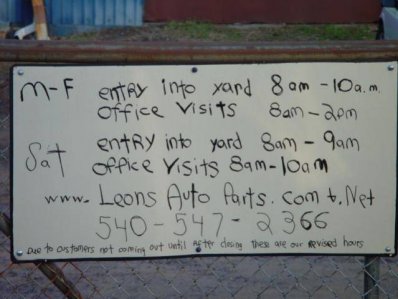 M-F entry into yard 8am-10a.m.
office visits 8am-2pm
Sat entry into yard 8am-9am
office visits 8am-10am
www.Leons Auto Parts.com &.Net
540-547-2366
Due to customers not coming out until after closing these are our revised hours